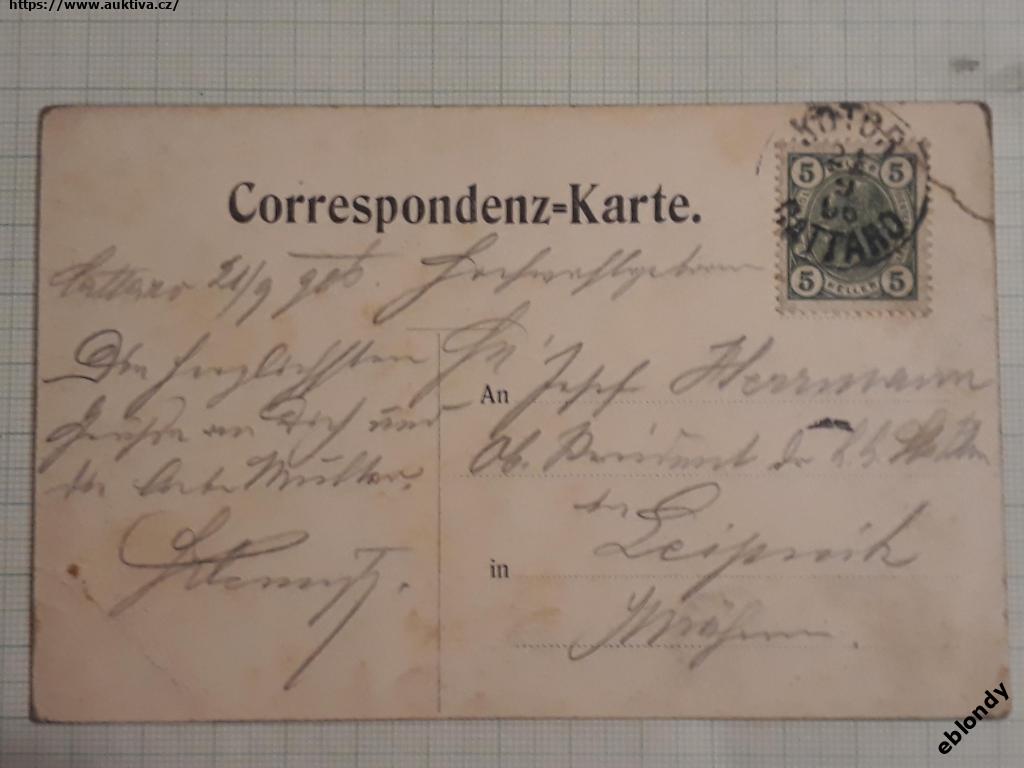 https://www.auktiva.cz/
KOTOR
21
9
06
CATTARO
5 5
5 HELLER 5
Correspondenz=Karte.
Cattaro 21/9 906. Hochwohlgeboren
Die herzlichsten
Grüße an Dich und
die liebe Mutter.
An
Josef Herrmann
Ob.
in
Leipnik
Mähren.
eblondy